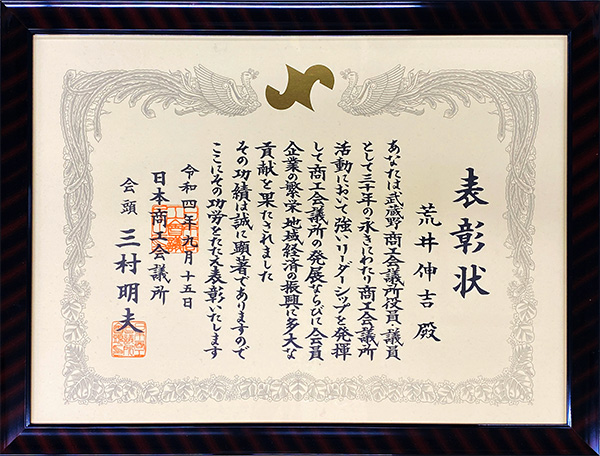 表彰状
荒井伸吉殿
あなたは武蔵野商工会議所役員・議員
として三十年の永きにわたり商工会議所
活動において強いリーダーシップを発揮
して商工会議所の発展ならびに会員
企業の繁栄地域経済の振興に多大な
貢献を果たされました
その功績は誠に顕著でありますので
ここにその功労をたたえ表彰いたします
令和四年九月十五日
日本商工会議所
会頭 三村明夫